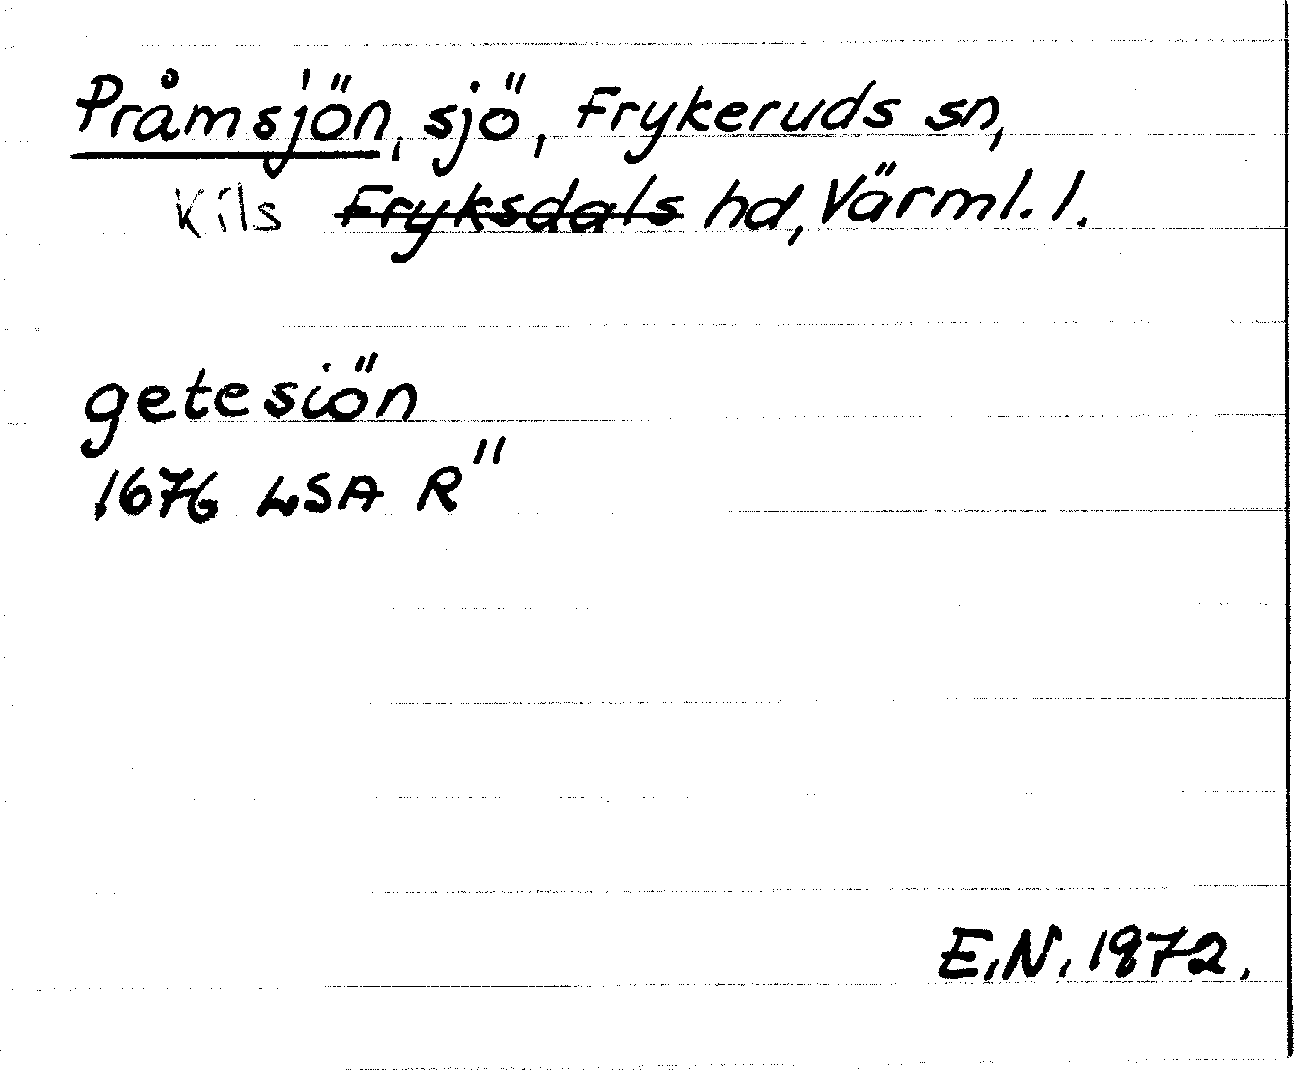 Pråmsjön, sjö, Frykeruds sn,
Kils Fryksdals hd, Värml. l.
getesiön
1676 LSA R"
E.N. 1972.